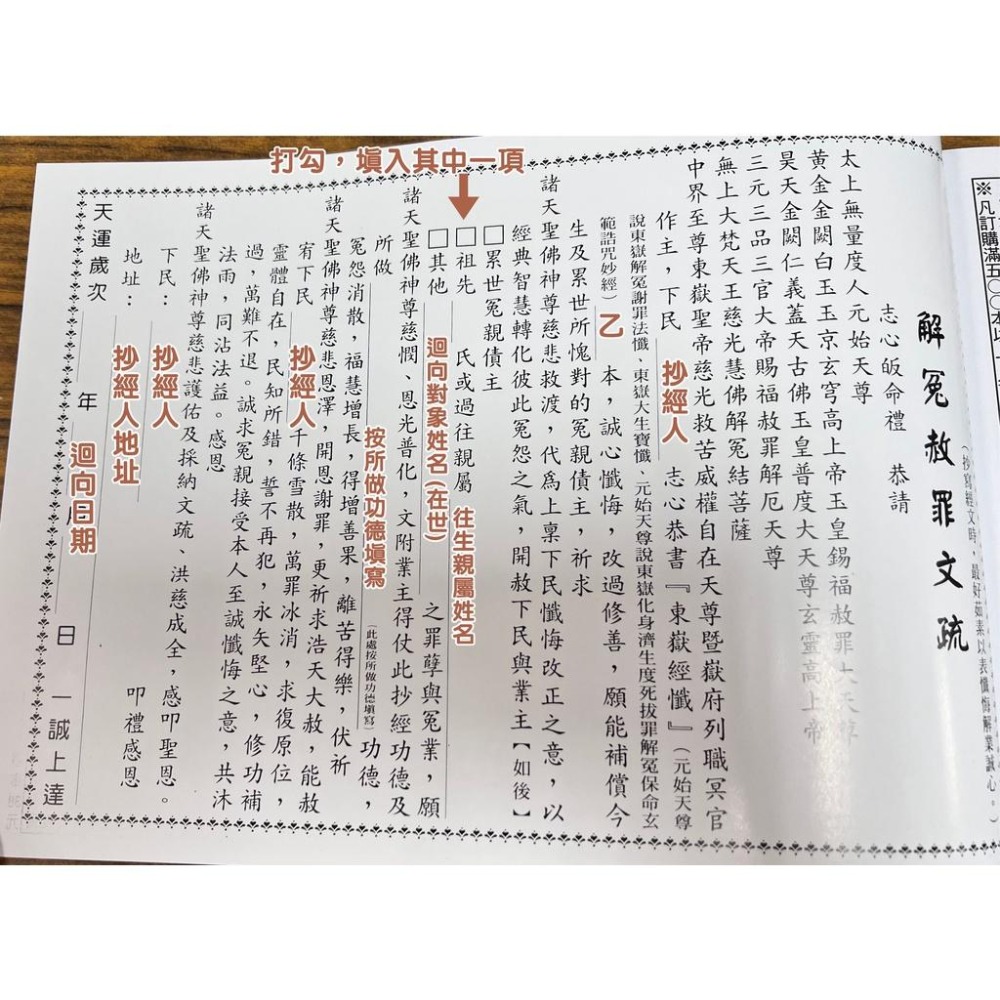 ※凡訂購滿五〇〇本以
解冤赦罪文疏
(抄寫經文時，最好茹素以表懺悔解業誠心。)
志心皈命禮　恭請
太上無量度人元始天尊
黃金金闕白玉玉京玄穹高上帝玉皇錫福赦罪大天尊
昊天金闕仁義蓋天古佛玉皇普度大天尊玄靈高上帝
三元三品三官大帝賜福赦罪解厄天尊
無上大梵天王慈光慧佛解冤結菩薩
中界至尊東嶽聖帝慈光救苦威權自在天尊暨嶽府列職冥官
作主，下民　抄經人　志心恭書『東嶽經懺』(元始天尊
說東嶽解冤謝罪法懺、東嶽大生寶懺、元始天尊說東嶽化身濟生度死拔罪解冤保命玄
範誥咒妙經)　乙　本，誠心懺悔，改過修善，願能補償今
生及累世所愧對的冤親債主，祈求
諸天聖佛神尊慈悲救渡，代為上稟下民懺悔改正之意，以
經典智慧轉化彼此冤怨之氣，開赦下民與業主【如後】
打勾，填入其中一項
□累世冤親債主
□祖先　民或過往親屬　往生親屬姓名
□其他　迴向對象姓名(在世)　之罪孽與冤業，願
諸天聖佛神尊慈憫、恩光普化，文附業主得仗此抄經功德及
所做　按所做功德填寫　(此處按所做功德填寫)　功德，
冤怨消散，福慧增長，得增善果，離苦得樂，伏祈
諸天聖佛神尊慈悲恩澤，開恩謝罪，更祈求浩天大赦，能赦
宥下民　抄經人　千條雪散，萬罪冰消，求復原位，
靈體自在，民知所錯，誓不再犯，永矢堅心，修功補
過，萬難不退。誠求冤親接受本人至誠懺悔之意，共沐
法雨，同沾法益。感恩
諸天聖佛神尊慈悲護佑及採納文疏、洪慈成全，感叩聖恩。
下民：　抄經人　叩禮感恩
地址：　抄經人地址
天運歲次　年　月　日　一誠上達
迴向日期